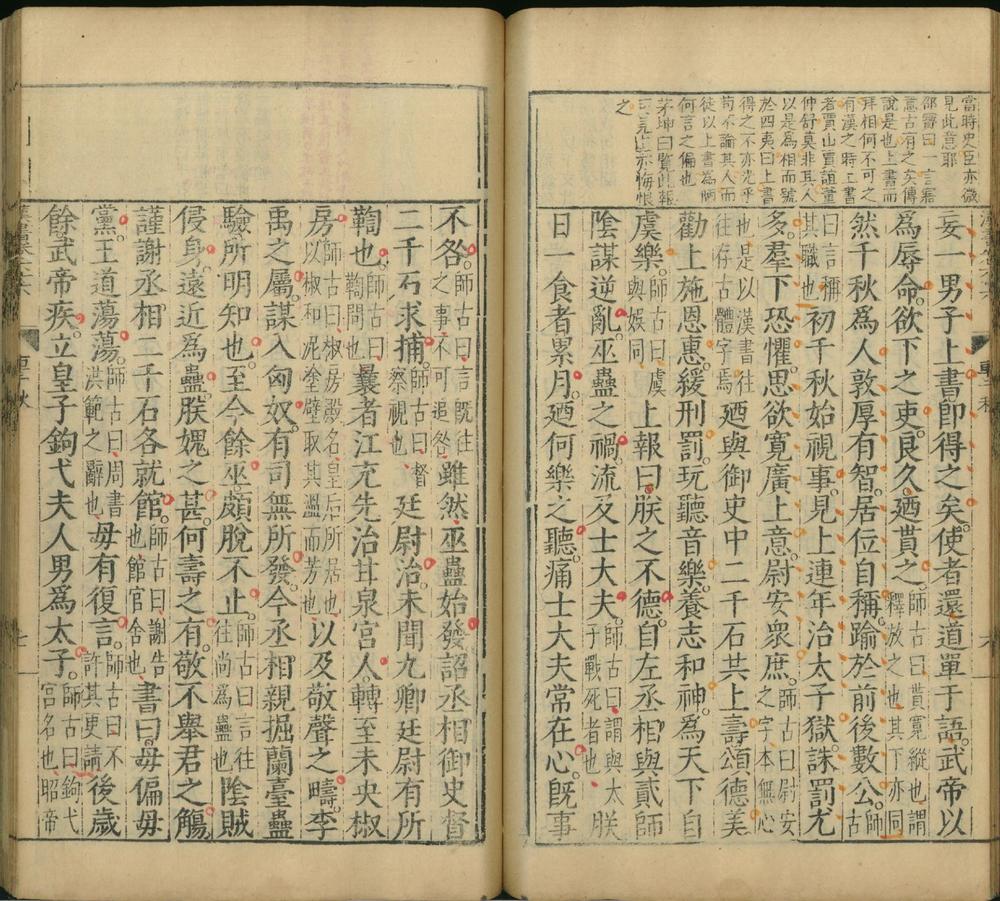 當時史臣亦微
見此意耶
邵寶曰一言寤
意古有之矣傳
說是也上書而
拜相何不可之
有漢之時上書
者賈山賈誼董
仲舒莫非其人
以是爲相而號
於四夷曰上書
得之不亦光乎
苟不論其人而
徒以上書爲病
何言之偏也
茅坤曰覽此報
亦悔恨
之
妄一男子上書卽得之矣使者還道單于語武帝以
爲辱命欲下之吏良久廼貰之師古曰貰寬縱也謂釋放之也其下亦同
然千秋爲人敦厚有智居位自稱踰於前後數公師古
曰言稱其職也初千秋始視事見上連年治太子獄誅罰尤
多羣下恐懼思欲寬廣上意尉安衆庶師古曰尉安之字本無心
也是以漢書往往存古體字焉廼與御史中二千石共上壽頌德美
勸上施恩惠緩刑罰玩聽音樂養志和神爲天下自
虞樂師古曰虞與娛同上報曰朕之不德自左丞相與貳師
陰謀逆亂巫蠱之禍流及士大夫師古曰謂與太子戰死者也朕
日一食者累月廼何樂之聽痛士大夫常在心旣事
不咎師古曰言旣往之事不可追咎雖然巫蠱始發詔丞相御史督
二千石求捕師古曰督察視也廷尉治未聞九卿廷尉有所
鞫也師古曰鞫問也曩者江充先治甘泉宮人轉至未央椒
房師古曰椒房殿名皇后所居也以椒和泥塗壁取其溫而芳也以及敬聲之疇李
禹之屬謀入匈奴有司無所發今丞相親掘蘭臺蠱
驗所明知也至今餘巫頗脫不止師古曰言往往尚爲蠱也陰賊
侵身遠近爲蠱朕媿之甚何壽之有敬不舉君之觴
謹謝丞相二千石各就館師古曰謝告也館官舍也書曰毋偏毋
黨王道蕩蕩師古曰周書洪範之辭也毋有復言師古曰不許其更請後歲
餘武帝疾立皇子鉤弋夫人男爲太子師古曰鉤弋宮名也昭帝